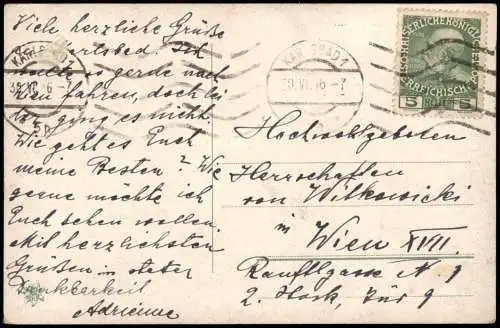 Viele herzliche Grüße
Karlsbad. Ich
wollte so gerne nach
Wien fahren, doch bis
ging es nicht.
Wie geht es Euch
meine Besten? Wie
gerne möchte ich
Euch sehen wollen.
Mit herzlichsten
Grüßen in steter
Dankbarkeit
Adrienne
KARLSBAD 1
30. VI. 16 -7
KARLSBAD 1
30. VI. 16 -7
KAISERLICHE KÖNIGLICHE
5 HELLER 5
Hochwohlgeboren
Herrschaften
von Witkowicki
in
Wien XVII.
Ranftlgasse N. 9
2. Stock, Tür 9